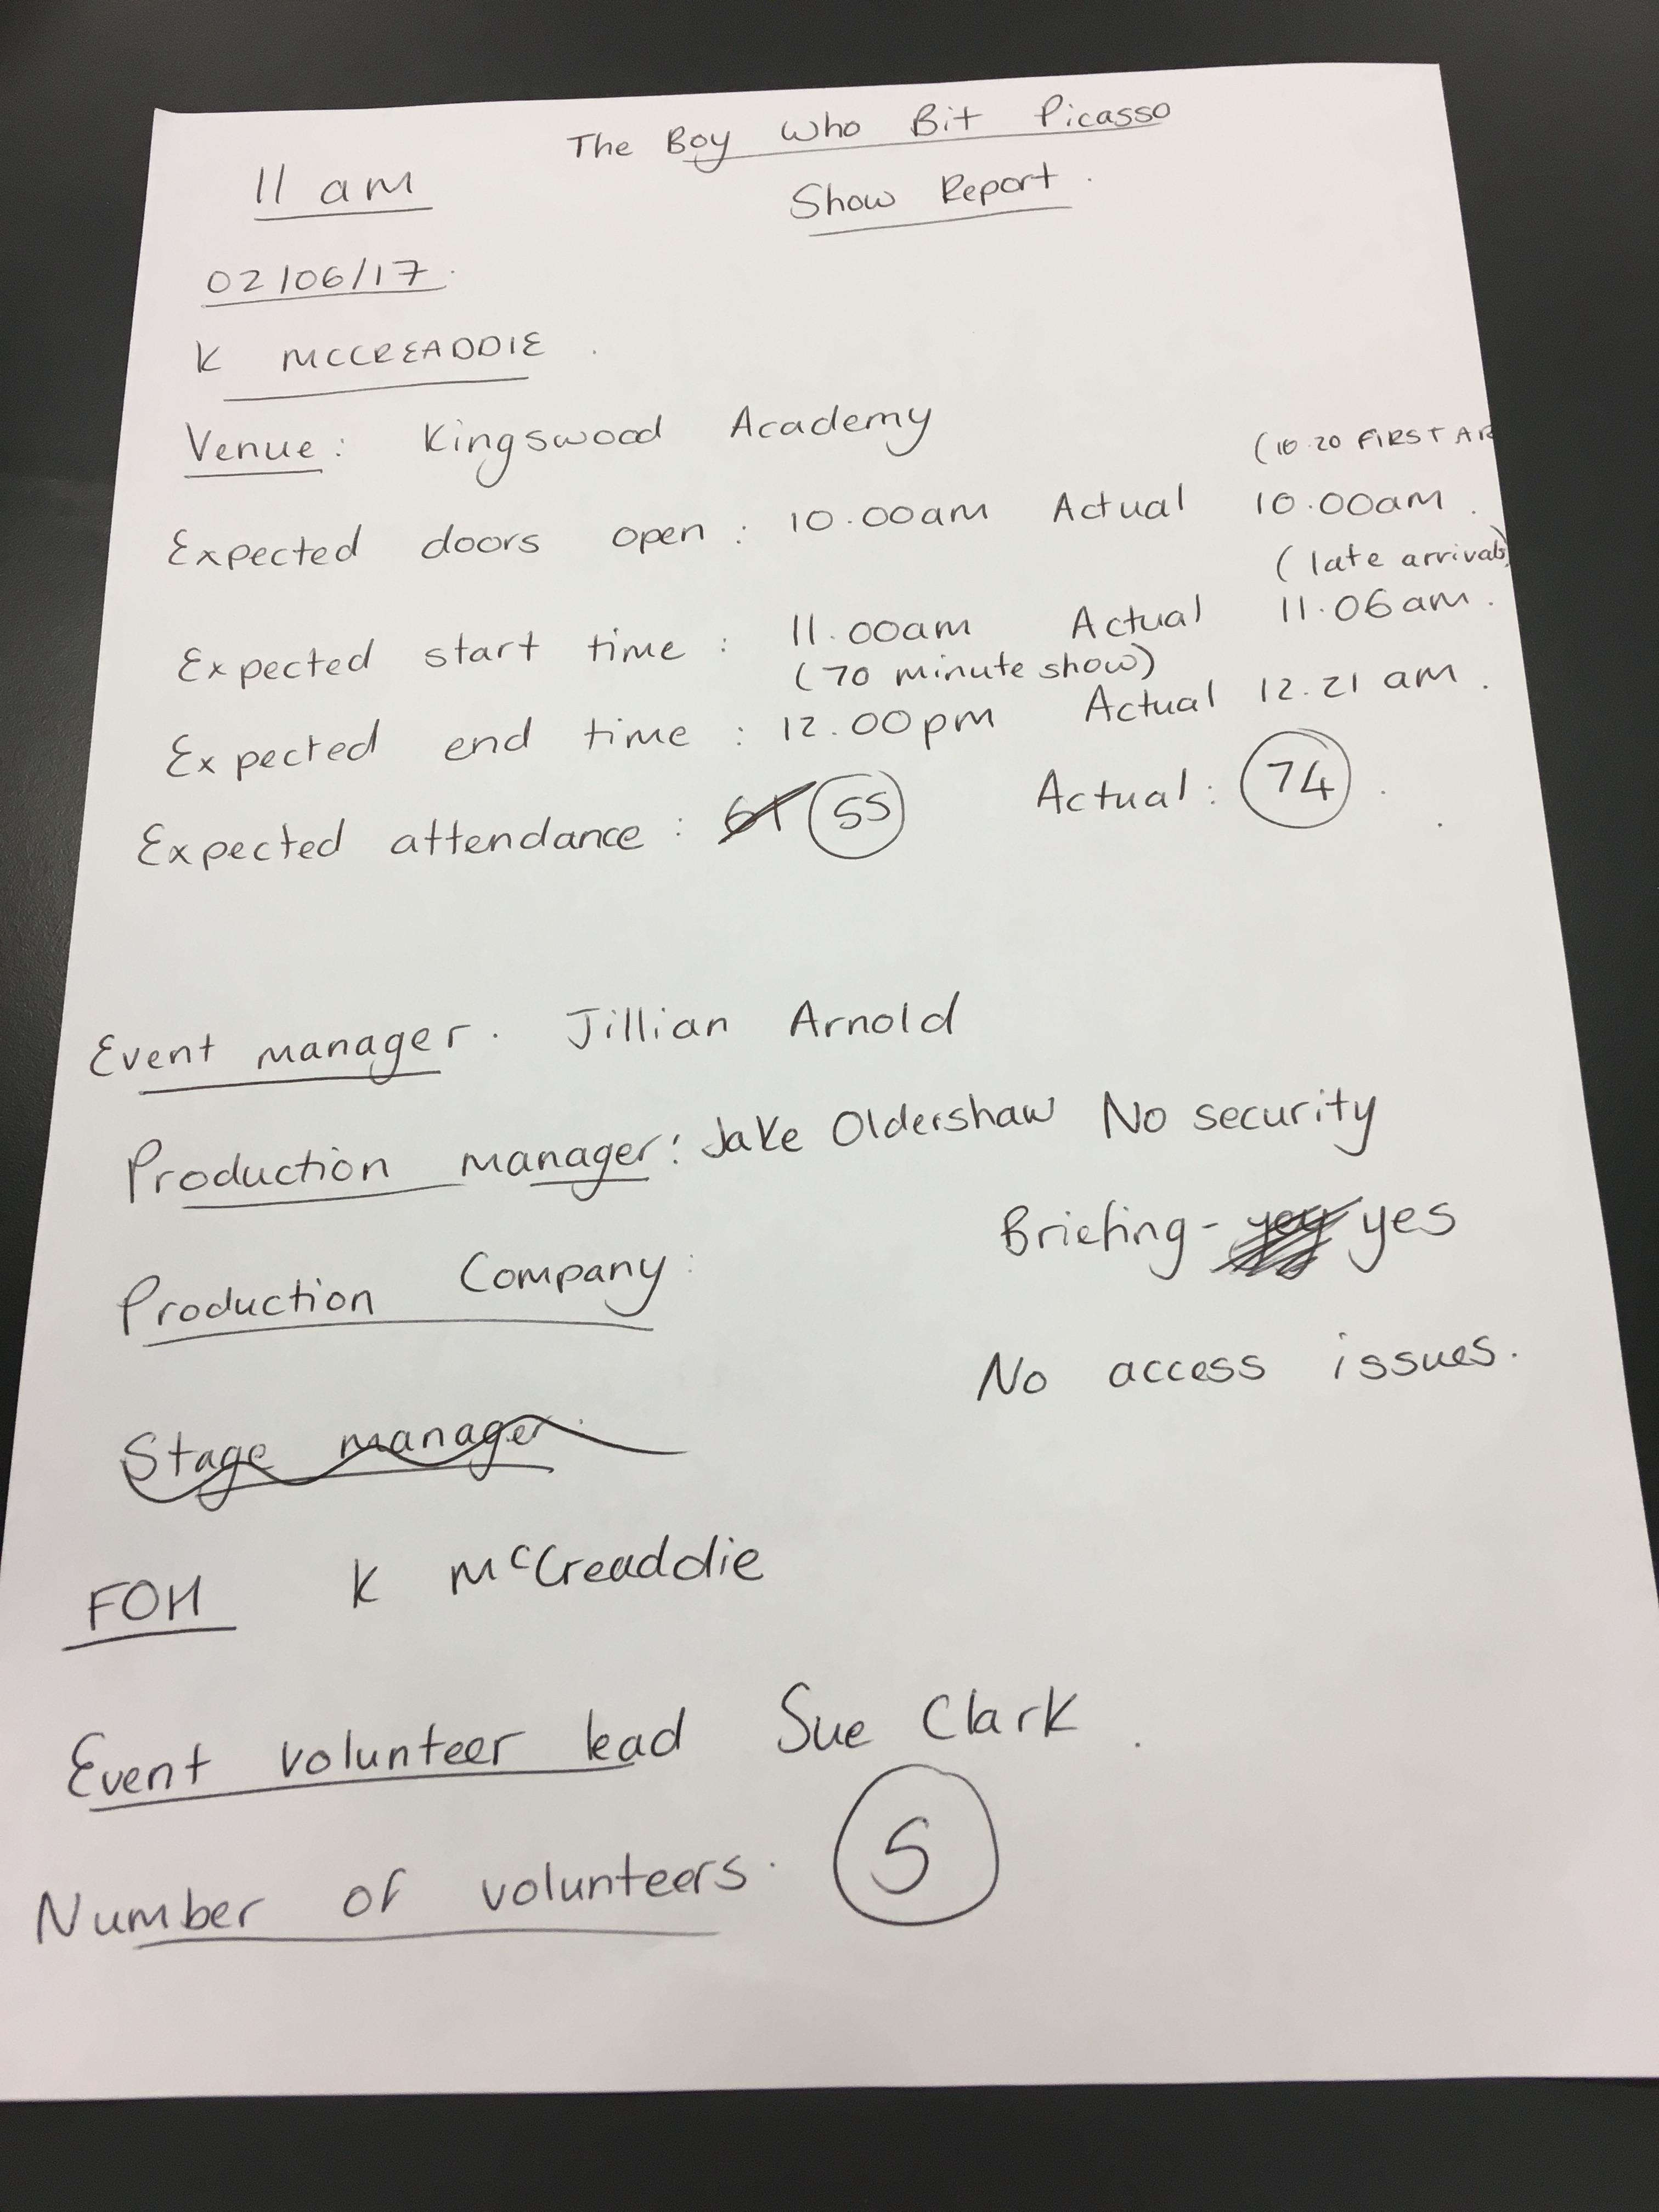 The Boy Who Bit Picasso
11 am
Show Report.
02/06/17.
K MCCREADDIE.
Venue: Kingswood Academy
(10.20 FIRST AR
Expected doors open: 10.00am Actual 10.00am.
(late arrivals)
Expected start time: 11.00am Actual 11.06am.
(70 minute show)
Expected end time: 12.00pm Actual 12.21 am.
Expected attendance: 61 55 Actual: 74.
Event manager. Jillian Arnold
Production manager: Jake Oldershaw No security
Briefing - yes
Production Company:
No access issues.
Stage manager.
FOH K McCreaddie
Event volunteer lead Sue Clark.
Number of volunteers. 5